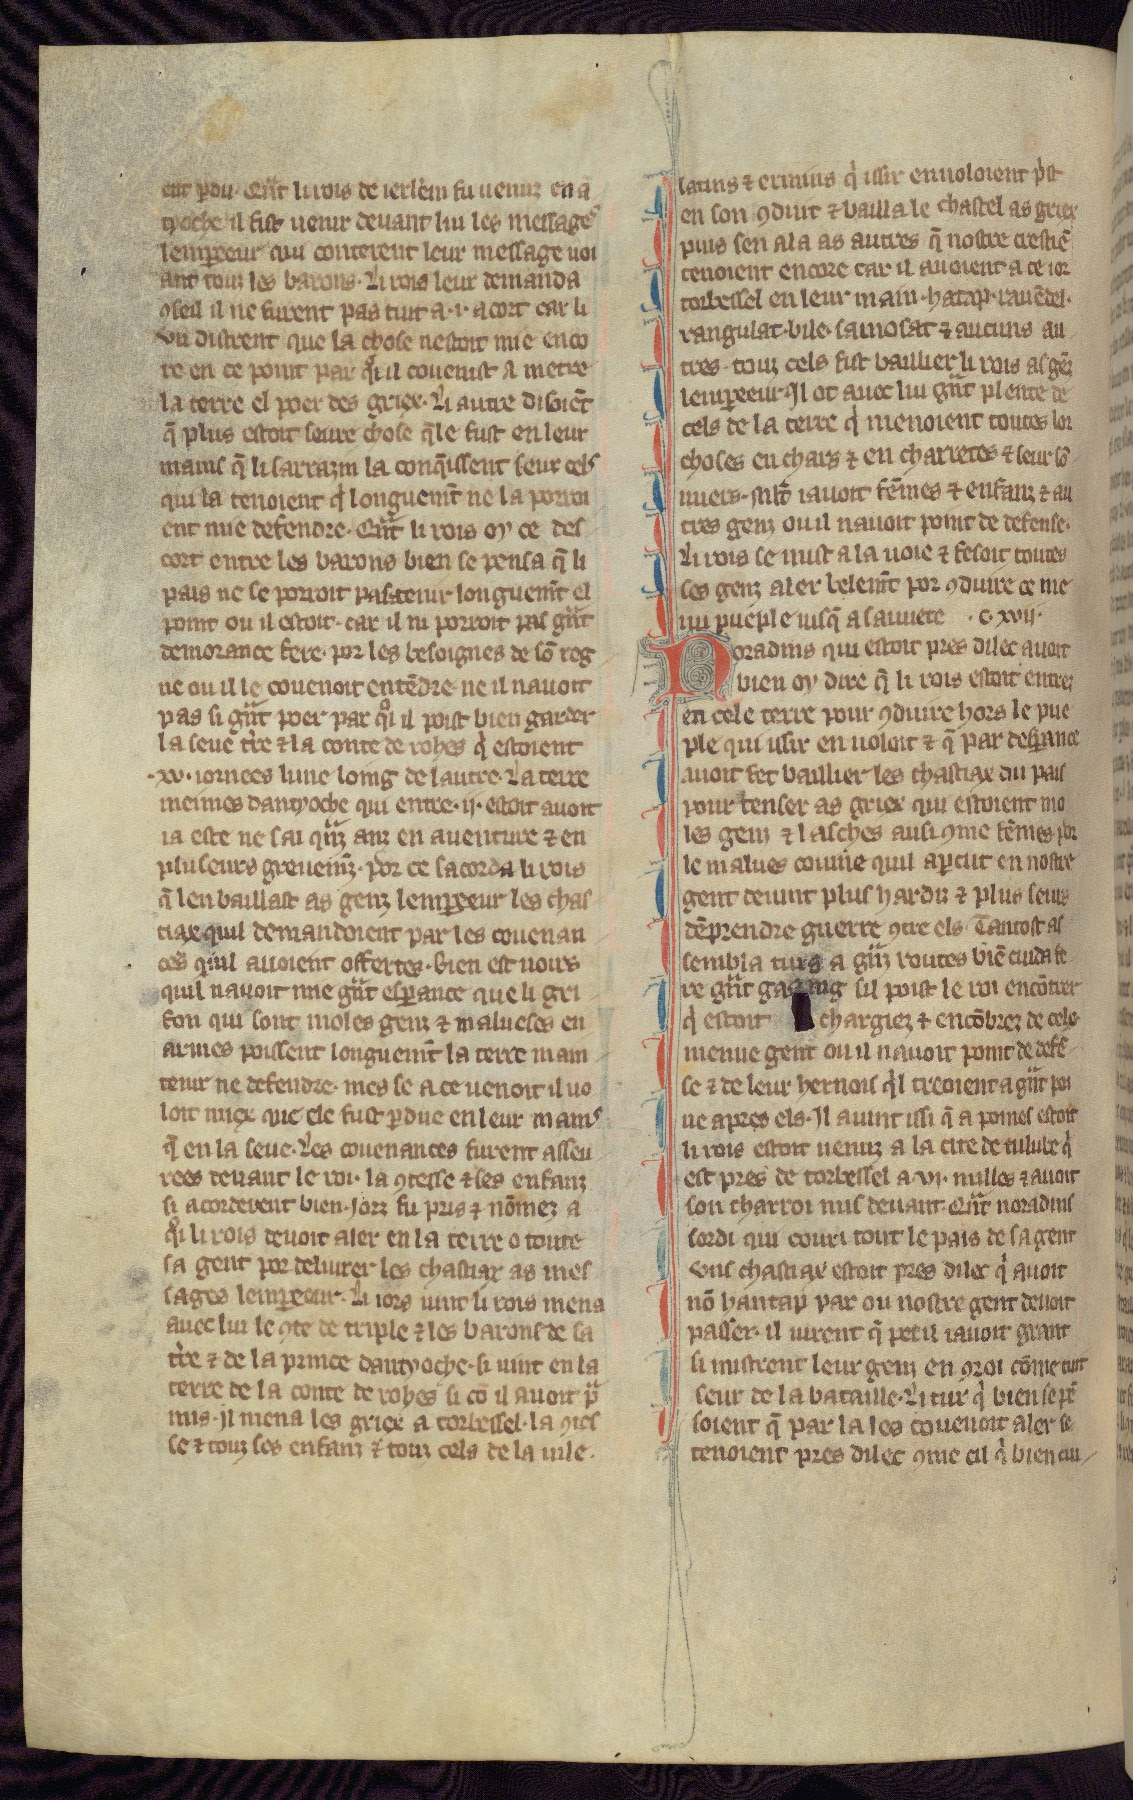 ent ꝑdu. Qn̄t li rois de ierlēm fu uenuz en an
tyoche il fist uenir deuant lui les messages
lempeeur qui conterent leur message uoi
ant touz les barons. Li rois leur demanda
ꝯseil il ne furent pas tuit a .i. acort car li
Vn distrent que la chose nestoit mie enco
re en ce point par qͦi il couenist a metre
la terre el poer des griex. Li autre disoiēt
q̄ plus estoit seure chose q̄le fust en leur
mains q̄ li sarrazin la conq̄issent seur cels
qui la tenoient qͥ longuemt̄ ne la porroi
ent mie defendre. Qn̄t li rois oy ce des
cort entre les barons bien se pensa q̄ li
pais ne se porroit pas tenir longuemt̄ el
point ou il estoit. car il ni porroit pas gn̄t
demorance fere. por les besoignes de sō reg
ne ou il le couenoit entēdre. ne il nauoit
pas si gn̄t poer par qͦi il poist bien garder
la seue tr̄e ⁊ la conte de rohes qͥ estoient
.xv. iornees lune loing de lautre. La terre
meimes dantyoche qui entre .ij. estoit auoit
ia este ne sai qn̄z anz en auenture ⁊ en
pluseurs greuemz̄. por ce sacorda li rois
q̄ len baillast as genz lempeeur les chas
tiax quil demandoient par les couenan
ces quil auoient offertes. bien est uoirs
quil nauoit mie gn̄t esꝑance que li gri
fon qui sont moles genz ⁊ malueses en
armes poissent longuemt̄ la terre main
tenir ne defendre. mes se a ce uenoit il uo
loit miex que ele fust ꝑdue en leur mains
q̄ en la seue. Les couenances furent asseu
rees deuant le roi. la ꝯtesse ⁊ ses enfanz
si acorderent bien. Iorz fu pris ⁊ nōmez a
qͦi li rois deuoit aler en la terre o toute
sa gent por deliurer les chastiax as mes
sages lempeeur. Li iors uint li rois mena
auec lui le ꝯte de triple ⁊ les barons de sa
tr̄e ⁊ de la prince dantyoche. si uint en la
terre de la conte de rohes si cō il auoit pͣ
mis. Il mena les griex a torbessel. la ꝯtes
se ⁊ touz ses enfanz ⁊ touz cels de la uile.
latins ⁊ ermins qͥ issir en uoloient pͥst
en son ꝯduit ⁊ bailla le chastel as griex
puis sen ala as autres q̄ nostre crestiē
tenoient encore car il auoient a ce ior
torbessel en leur main. hatap. rauēdel.
rangulat. bile. samosat ⁊ aucuns au
tres. touz cels fist baillier li rois as gēz
lempeeur. Il ot auec lui gn̄t plente de
cels de la terre qͥ menoient toutes lor
choses en chars ⁊ en charretes ⁊ seur sō
miers. Mlt̄ iauoit fēmes ⁊ enfanz ⁊ au
tres genz ou il nauoit point de defense.
Li rois se mist a la uoie ⁊ fesoit toutes
ses genz aler belemt̄ por ꝯduire ce me
nu pueple iusq̄ a sauuete .c.xvij.
Noradins qui estoit pres dilec auoit
bien oy dire q̄ li rois estoit entrez
en cele terre pour ꝯduire hors le pue
ple qui issir en uoloit ⁊ q̄ par desꝑance
auoit fet baillier les chastiax du pais
pour tenser as griex qui estoient mo
les genz ⁊ lasches ausi ꝯme fēmes por
le malues couine quil aꝑcut en nostre
gent deuint plus hardiz ⁊ plus seurs
dēprendre guerre ꝯtre els. Tantost as
sembla turs a gn̄z routes biē cuida fe
re gn̄t gaaing sil poist le roi encōtrer
qͥ estoit chargiez ⁊ encōbrez de cele
menue gent ou il nauoit point de defē
se ⁊ de leur hernois qͥl treoient a gn̄t poi
ne apres els. Il auint issi q̄ a poines estoit
li rois estoit uenuz a la cite de tulube qͥ
est pres de torbessel a .vi. milles ⁊ auoit
son charroi mis deuant. Qn̄t noradins
sordi qui couri tout le pais de sa gent
Vns chastiax estoit pres dilec qͥ auoit
nō hantap par ou nostre gent deuoit
passer. il uirent q̄ peril iauoit grant
si mistrent leur genz en ꝯroi cōme tuit
seur de la bataille. Li tur qͥ bien se pē
soient q̄ par la les couenoit aler se
tenoient pres dilec ꝯme cil qͥ bien cui